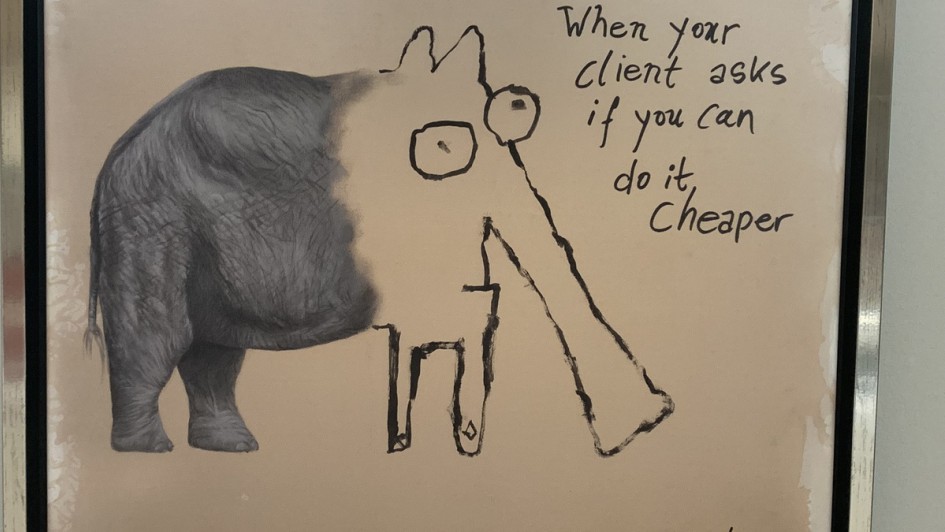 When your
client asks
if you can
do it
Cheaper